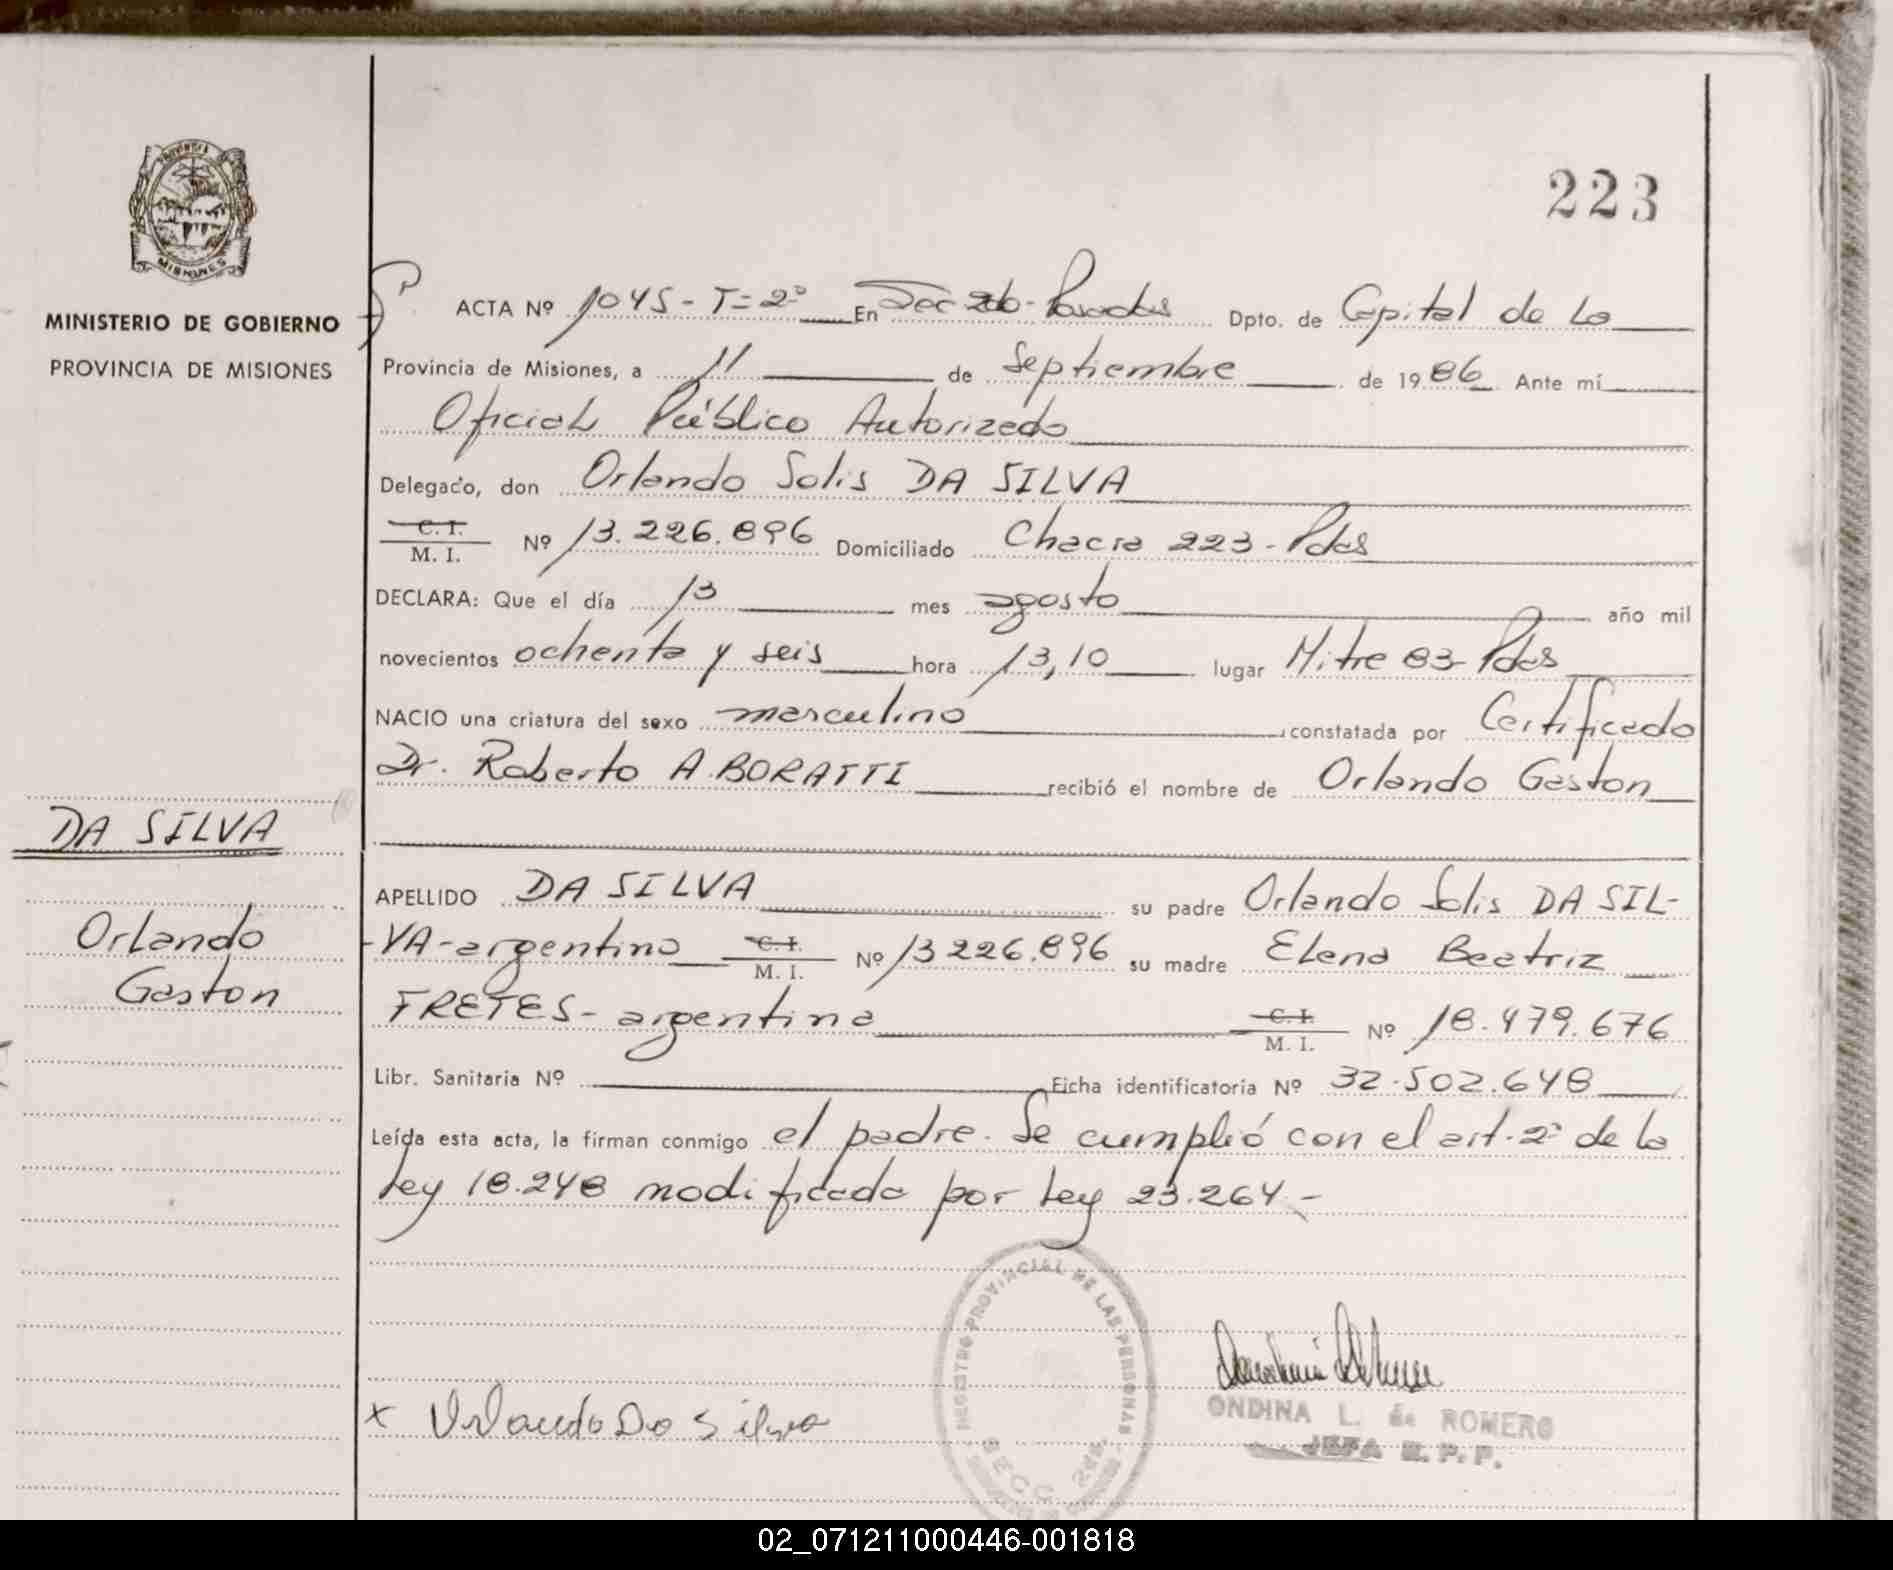 223
PROVINCIA
MISIONES
MINISTERIO DE GOBIERNO
PROVINCIA DE MISIONES
ACTA Nº 1045 - T=2º En Sec 2da - Posadas Dpto. de Capital de La
Provincia de Misiones, a 11 de Septiembre de 1986 Ante mí
Oficial Público Autorizado
Delegado, don Orlando Solis DA SILVA
C. I.
M. I. Nº 13.226.896 Domiciliado Chacra 223 - Pdas
DECLARA: Que el día 13 mes agosto año mil
novecientos ochenta y seis hora 13,10 lugar Mitre 83 - Pdas
NACIO una criatura del sexo masculino constatada por Certificado
Dr. Roberto A. BORATTI recibió el nombre de Orlando Gaston
DA SILVA
Orlando
Gaston
APELLIDO DA SILVA su padre Orlando Solis DA SIL-
-VA - argentino C. I. M. I. Nº 13226.896 su madre Elena Beatriz
FRETES - argentina C. I. M. I. Nº 18.479.676
Libr. Sanitaria Nº Ficha identificatoria Nº 32.502.648
Leída esta acta, la firman conmigo el padre. Se cumplió con el art. 2º de la
Ley 18.248 modificada por Ley 23.264.-
REGISTRO PROVINCIAL DE LAS PERSONAS
SECC. 2da.
x Orlando Da Silva
ONDINA L. de ROMERO
JEFA R. P. P.
02_071211000446-001818